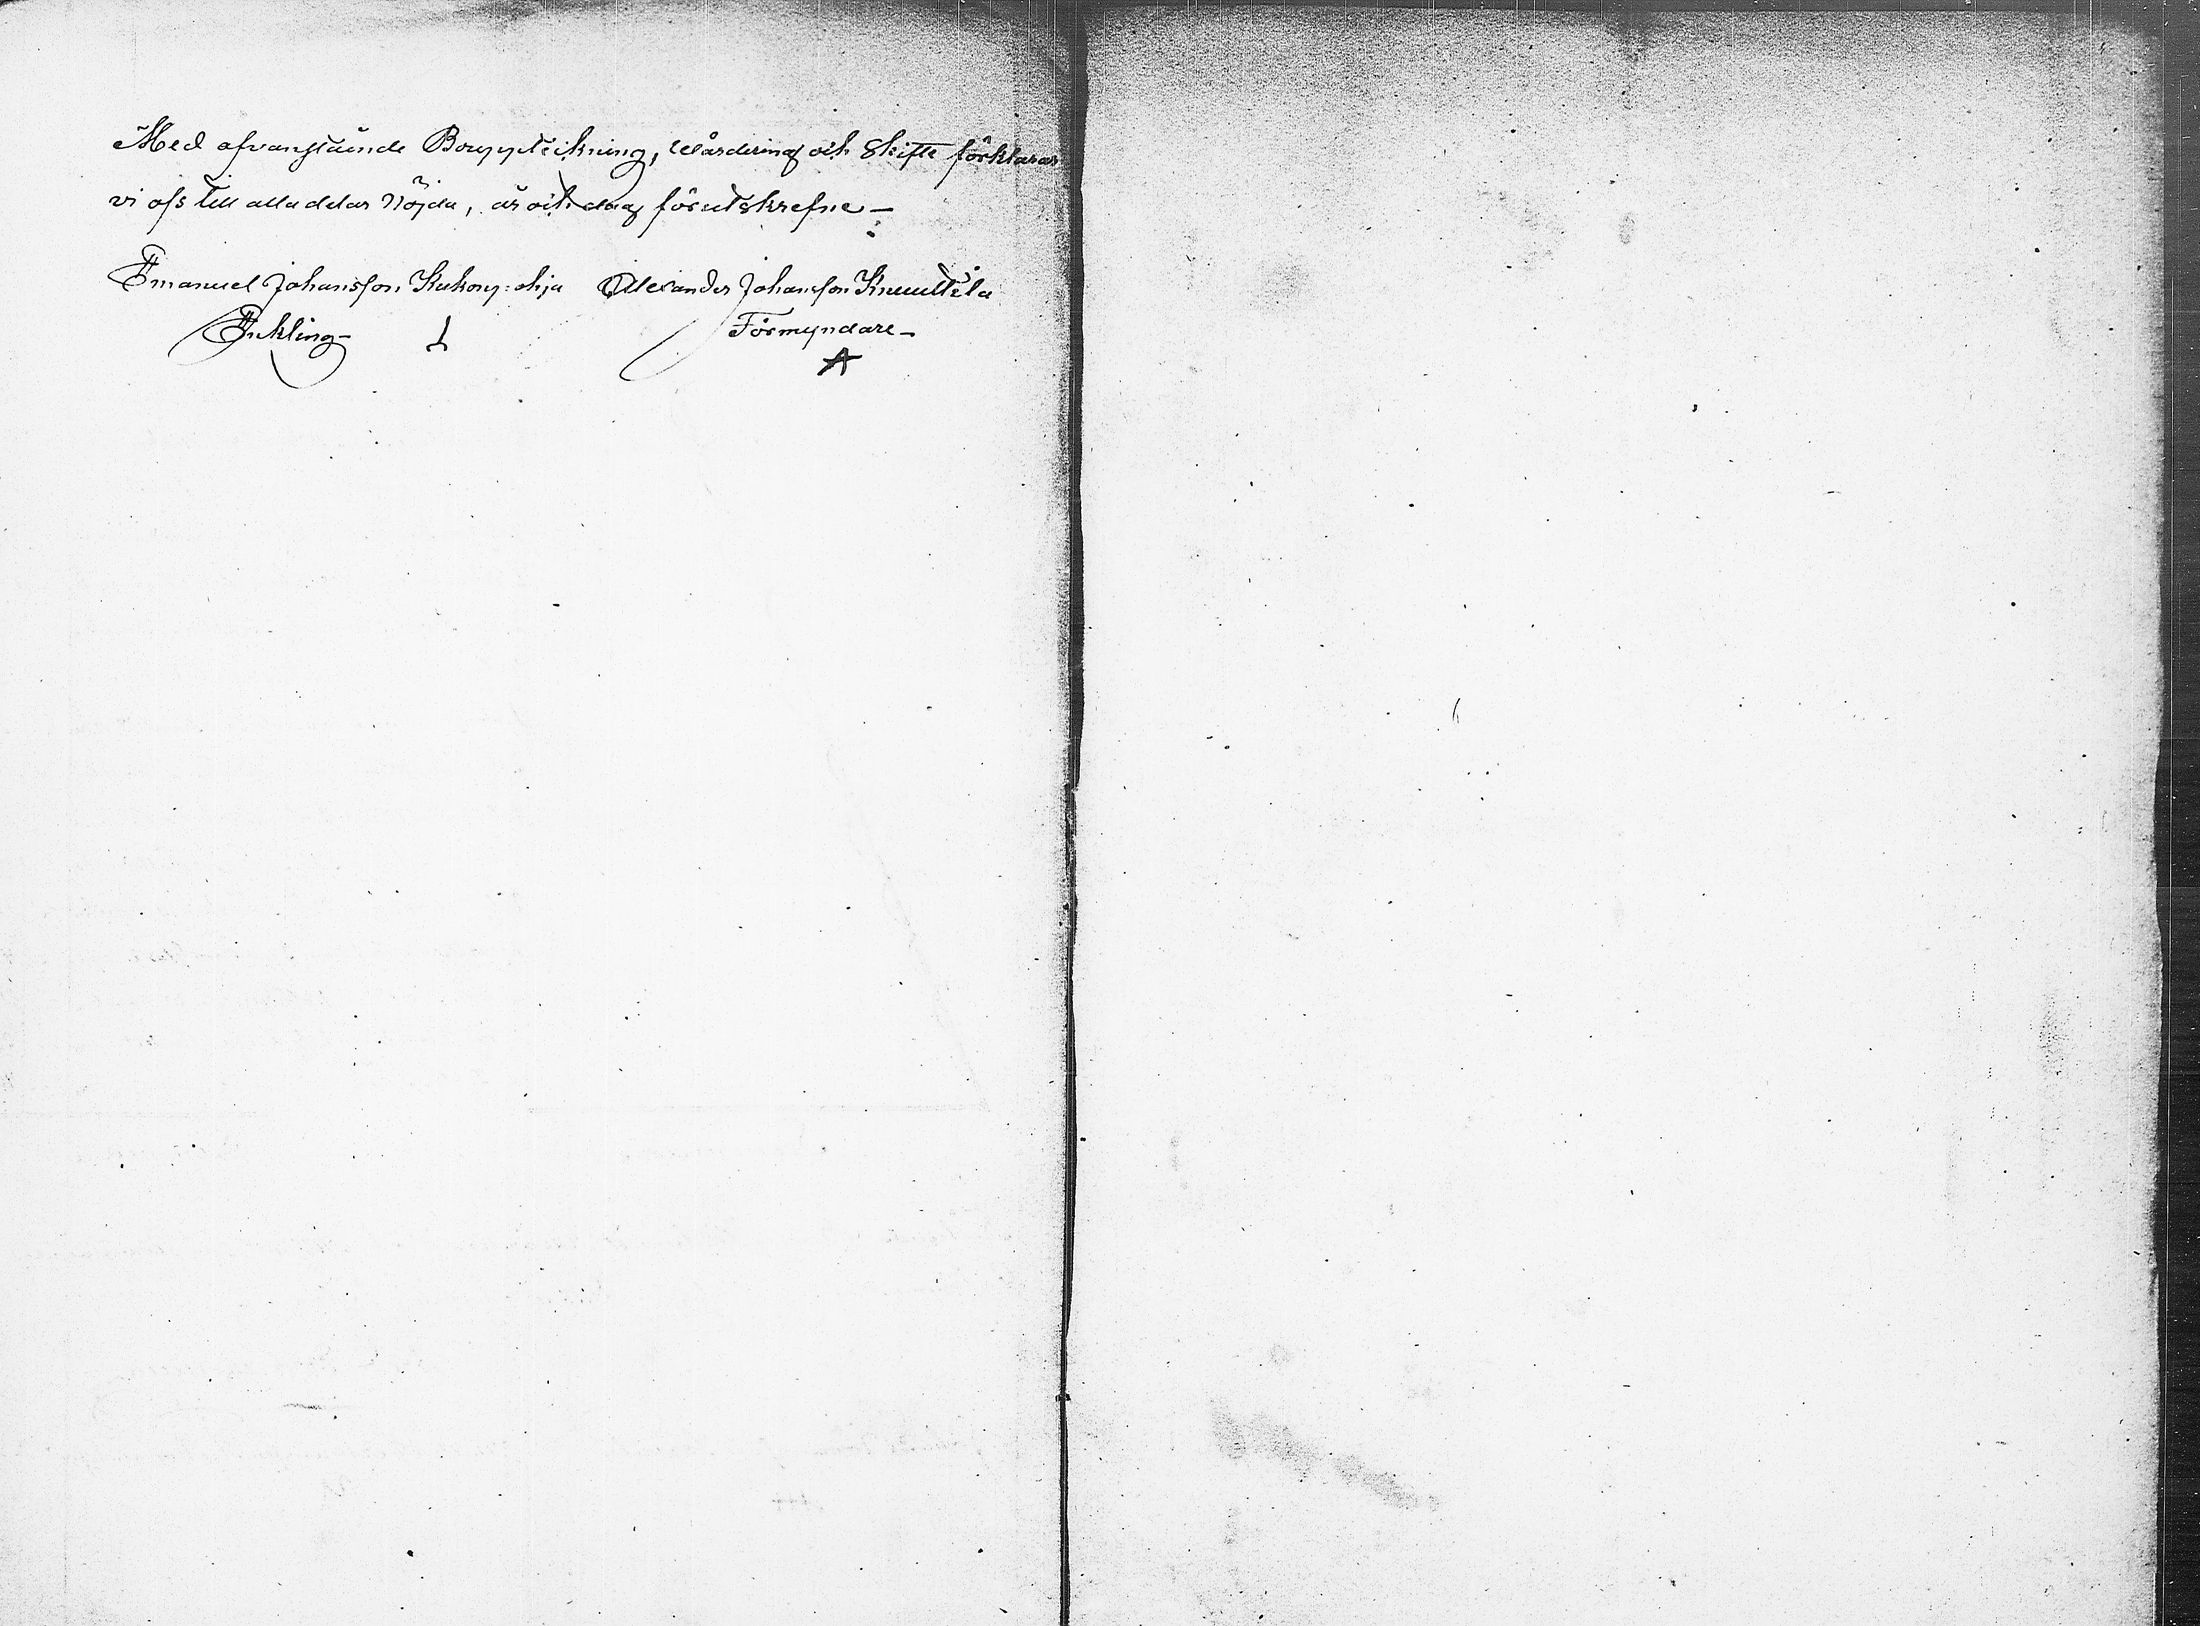 Med ofvanstäende Bouppteckning, Wärdering och Skifte förklarar
vi oss till alla delar Nöjda, år och dag förutskrefne –
Emanuel Johansson Alexander Johansson Knuuttila
Enkling – Förmyndare –